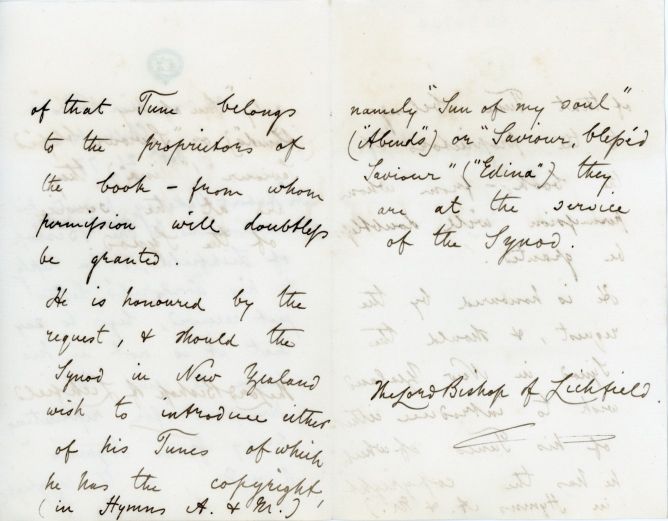 of that Tune belongs
to the proprietors of
the book – from whom
permission will doubtless
be granted.
He is honoured by the
request, & should the
Synod in New Zealand
wish to introduce either
of his Tunes of which
he has the copyright,
(in Hymns A. & M.)
namely "Sun of my soul"
("Abends") or "Saviour, bless'd
Saviour" ("Edina") they
are at the service
of the Synod.
The Lord Bishop of Lichfield.